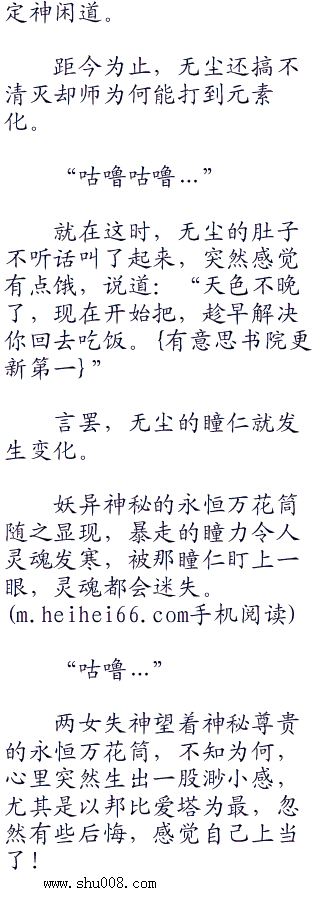 定神闲道。
距今为止，无尘还搞不
清灭却师为何能打到元素
化。
“咕噜咕噜…”
就在这时，无尘的肚子
不听话叫了起来，突然感觉
有点饿，说道：“天色不晚
了，现在开始把，趁早解决
你回去吃饭。{有意思书院更
新第一}”
言罢，无尘的瞳仁就发
生变化。
妖异神秘的永恒万花筒
随之显现，暴走的瞳力令人
灵魂发寒，被那瞳仁盯上一
眼，灵魂都会迷失。
(m.heihei66.com手机阅读)
“咕噜…”
两女失神望着神秘尊贵
的永恒万花筒，不知为何，
心里突然生出一股渺小感，
尤其是以邦比爱塔为最，忽
然有些后悔，感觉自己上当
了！
www.shu008.com